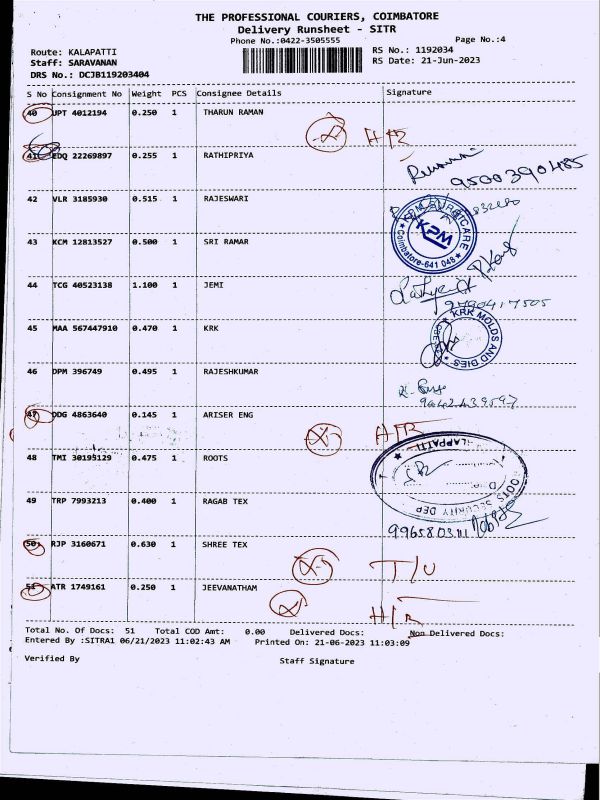 THE PROFESSIONAL COURIERS, COIMBATORE
Delivery Runsheet - SITR
Phone No.:0422-3505555 Page No.:4
Route: KALAPATTI RS No.: 1192034
Staff: SARAVANAN RS Date: 21-Jun-2023
DRS No.: DCJB119203404
S No Consignment No Weight PCS Consignee Details Signature
40 JPT 4012194 0.250 1 THARUN RAMAN
H/R
41 EDQ 22269897 0.255 1 RATHIPRIYA
9500390485
42 VLR 3185930 0.515 1 RAJESWARI
KPM SURGICARE
KPM
Coimbatore-641 048
43 KCM 12813527 0.500 1 SRI RAMAR
44 TCG 40523138 1.100 1 JEMI
9790417505
45 MAA 567447910 0.470 1 KRK
KRK MOLDS AND DIES
46 DPM 396749 0.495 1 RAJESHKUMAR
47 DDG 4863640 0.145 1 ARISER ENG
H/R
48 TMI 30193129 0.475 1 ROOTS
ROOTS SECURITY DEP
49 TRP 7993213 0.400 1 RAGAB TEX
50 RJP 3160671 0.630 1 SHREE TEX
T/U
51 ATR 1749161 0.250 1 JEEVANATHAM
H/R
Total No. Of Docs: 51 Total COD Amt: 0.00 Delivered Docs: Non Delivered Docs:
Entered By :SITRA1 06/21/2023 11:02:43 AM Printed On: 21-06-2023 11:03:09
Verified By Staff Signature